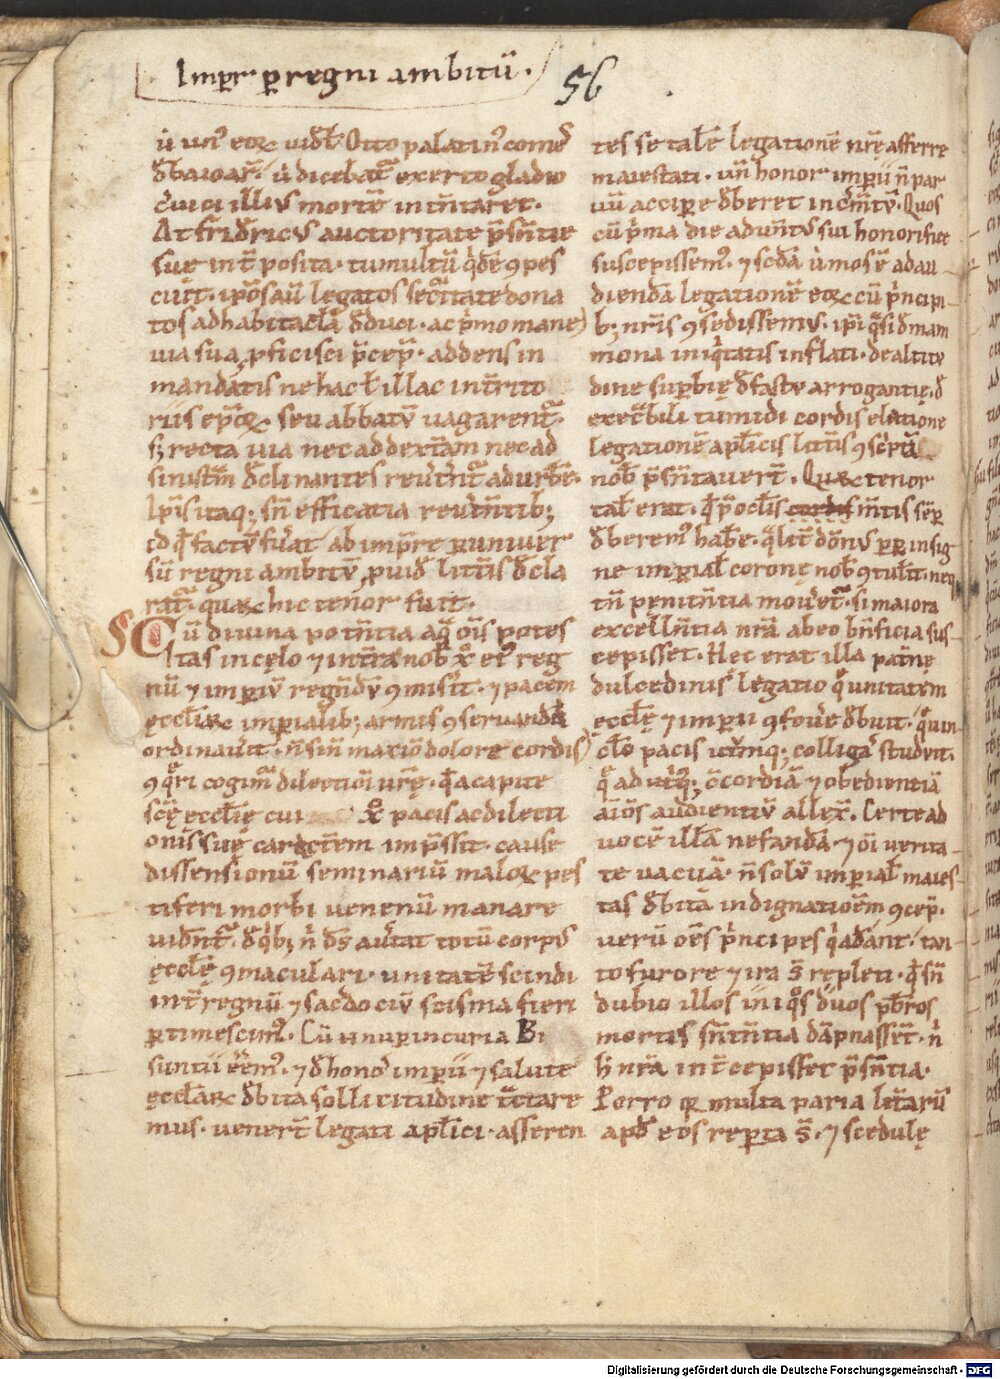 Impr̄ ꝑ regni ambitū .
56
ū un᷒ eoꝝ uidł. Otto palatin᷒ comes
đ baioar̄. ū dicebat᷑ exerto gladio
ceruici illiꝰ mortē intn̄taret.
At fridericꝰ auctoritate p̄sn̄tie
sue int̄posita. tumultū q̇dē ꝯpes
cuit. ip̄os aū legatos sec̄itate dona
tos ad habitac̄la đduci. ac p̄mo mane
uia sua ꝓficisci p̄cep̄. addens in
mandatis ne hac ł illac int̄rito
riis ep̄oꝝ seu abbatū uagarent᷑.
sꝫ recta uia nec ad dext̄am nec ad
sinistrā đclinantes reūt̄ent᷑ ad urbē.
Ip̄is itaq; sn̄ efficatia reūt̄ntib;
id qđ factū fūat ab imp̄re ꝑ uniuer
sū regni ambitū ꝓuiđ litt̄is đcla
rat᷑. quaꝝ hic tenor fuit.
Cū diuina potn̄tia a q̄ om̄s potes
tas in cęlo ⁊ in tr̄a nob̄ xp̄o ei᷒ reg
nū ⁊ imperiū regn̄dū ꝯmis̄it. ⁊ pacem
ęccl̄iaꝝ imperialib; armis ꝯseruandā
ordinau̇it. n̄ sin̄ maximo dolore cordis
ꝯq̄ri cogim᷑ dilectiōi ur̄ę. qđ a capite
scę̄ ęccl̄ię cui xp̄c pacis ac dilecti
onis suę caracterem imp̄ssit. cause
dissensionū seminariū maloꝝ pes
tiferi morbi uenenū manare
uidn̄t᷑. đ q̇b; n̄ dš au̇tat totū corpus
ęccl̄ę ꝯmaculari. unitatē scindi
int̄ regnū ⁊ sacdociū scisma fieri
ꝑtimescim᷒. Cū ū nuꝑ in curia Bi
suntii eēm᷒. ⁊ đ honoꝛ̄ imperii ⁊ salute
ęccl̄iaꝝ đbita sollicitudine tc̄tare
mus. uenert̄ legati ap̄lici. asseren
tes se talē legationē nr̄ę afferre
maiestati. un̄ honor imperii n̄ par
uū accipere đberet incrementū. Quos
cū p̄ma die aduentus sui honorifice
suscepissem᷒. ⁊ scđa ū mos ē ad au
diendā legationē eoꝝ cū p̄ncipi
b; nr̄is ꝯsedissemus. ip̄i q̄si đ mam
mona iniq̇tatis inflati. de altitu
dine suꝑbię đ fastu arrogantię. đ
execr̄bili tumidi cordis elatione
legationē ap̄licis litt̄is ꝯsc̄ptā
nob̄ p̄sn̄tauert̄. Quaꝝ tenor
tał erat. qđ p̄ oc̄lis m̄ntis semꝑ
đberem᷒ habere. q̄lit̄ domn᷒ p̄p̄ insig
ne imꝑial̄ coronę nob̄ ꝯtulit̄. neq;
tn̄ penitn̄tia mou̇et᷑. si maiora
excelln̄tia nr̄a ab eo bn̄ficia sus
cepisset. Hęc erat illa patn̄ę
dulcedinis legatio q̄ unitatem
ęccl̄ę ⁊ imperii ꝯfoūe đbuit. q̄ uin
cl̄o pacis utr̄umq; colligare studuit.
q̄ ad utr̄iq; ꝯcordiā ⁊ obedientiā
aīos audientiū allex̄. Certe ad
uocē illā nefandā ⁊ om̄i uerita
te uacuā. n̄ solū imperial̄ maies
tas đbitā indignatioēm ꝯcep̄.
uerū om̄s p̄ncipes q̇ aderant. tan
to furore ⁊ ira s̄t repleti. qđ sn̄
dubio illos iniq̊s duos p̄bros
mortis sn̄tn̄tia dāpnassent. n̄
h̄ nr̄a int̄cepisset p̄sn̄tia.
Porro qꝛ multa paria litt̄arū
apđ eos reꝑta s̄. ⁊ scedulę
Digitalisierung gefördert durch die Deutsche Forschungsgemeinschaft - DFG